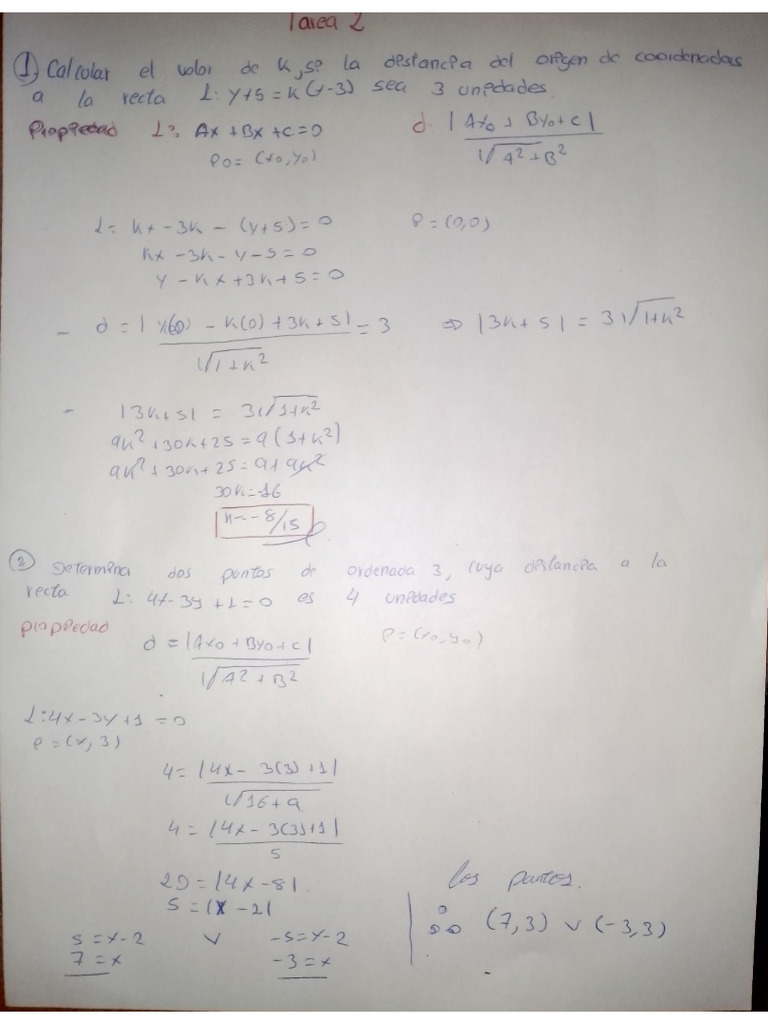 Tarea 2
① Calcular el valor de k, si la distancia del origen de coordenadas
a la recta L: y+5 = k(x-3) sea 3 unidades.
Propiedad L: Ax + Bx + C = 0 d. |Ax₀ + By₀ + C| / √(A² + B²)
P₀ = (x₀, y₀)
L = kx - 3k - (y+5) = 0 P = (0,0)
kx - 3k - y - 5 = 0
y - kx + 3k + 5 = 0
- d = |1(0) - k(0) + 3k + 5| / √(1+k²) = 3 ⇒ |3k+5| = 3√(1+k²)
- |3k+5| = 3√(1+k²)
9k² + 30k + 25 = 9(1+k²)
9k² + 30k + 25 = 9 + 9k²
30k = -16
k = -8/15
② Determina dos puntos de ordenada 3, cuya distancia a la
recta L: 4x - 3y + 1 = 0 es 4 unidades
propiedad d = |Ax₀ + By₀ + C| / √(A² + B²) P = (x₀, y₀)
L: 4x - 3y + 1 = 0
P = (x, 3)
4 = |4x - 3(3) + 1| / √(16+9)
4 = |4x - 3(3)+1| / 5
20 = |4x - 8|
5 = |x - 2|
5 = x-2 ∨ -5 = x-2
7 = x -3 = x
los puntos.
∴ (7,3) ∨ (-3,3)